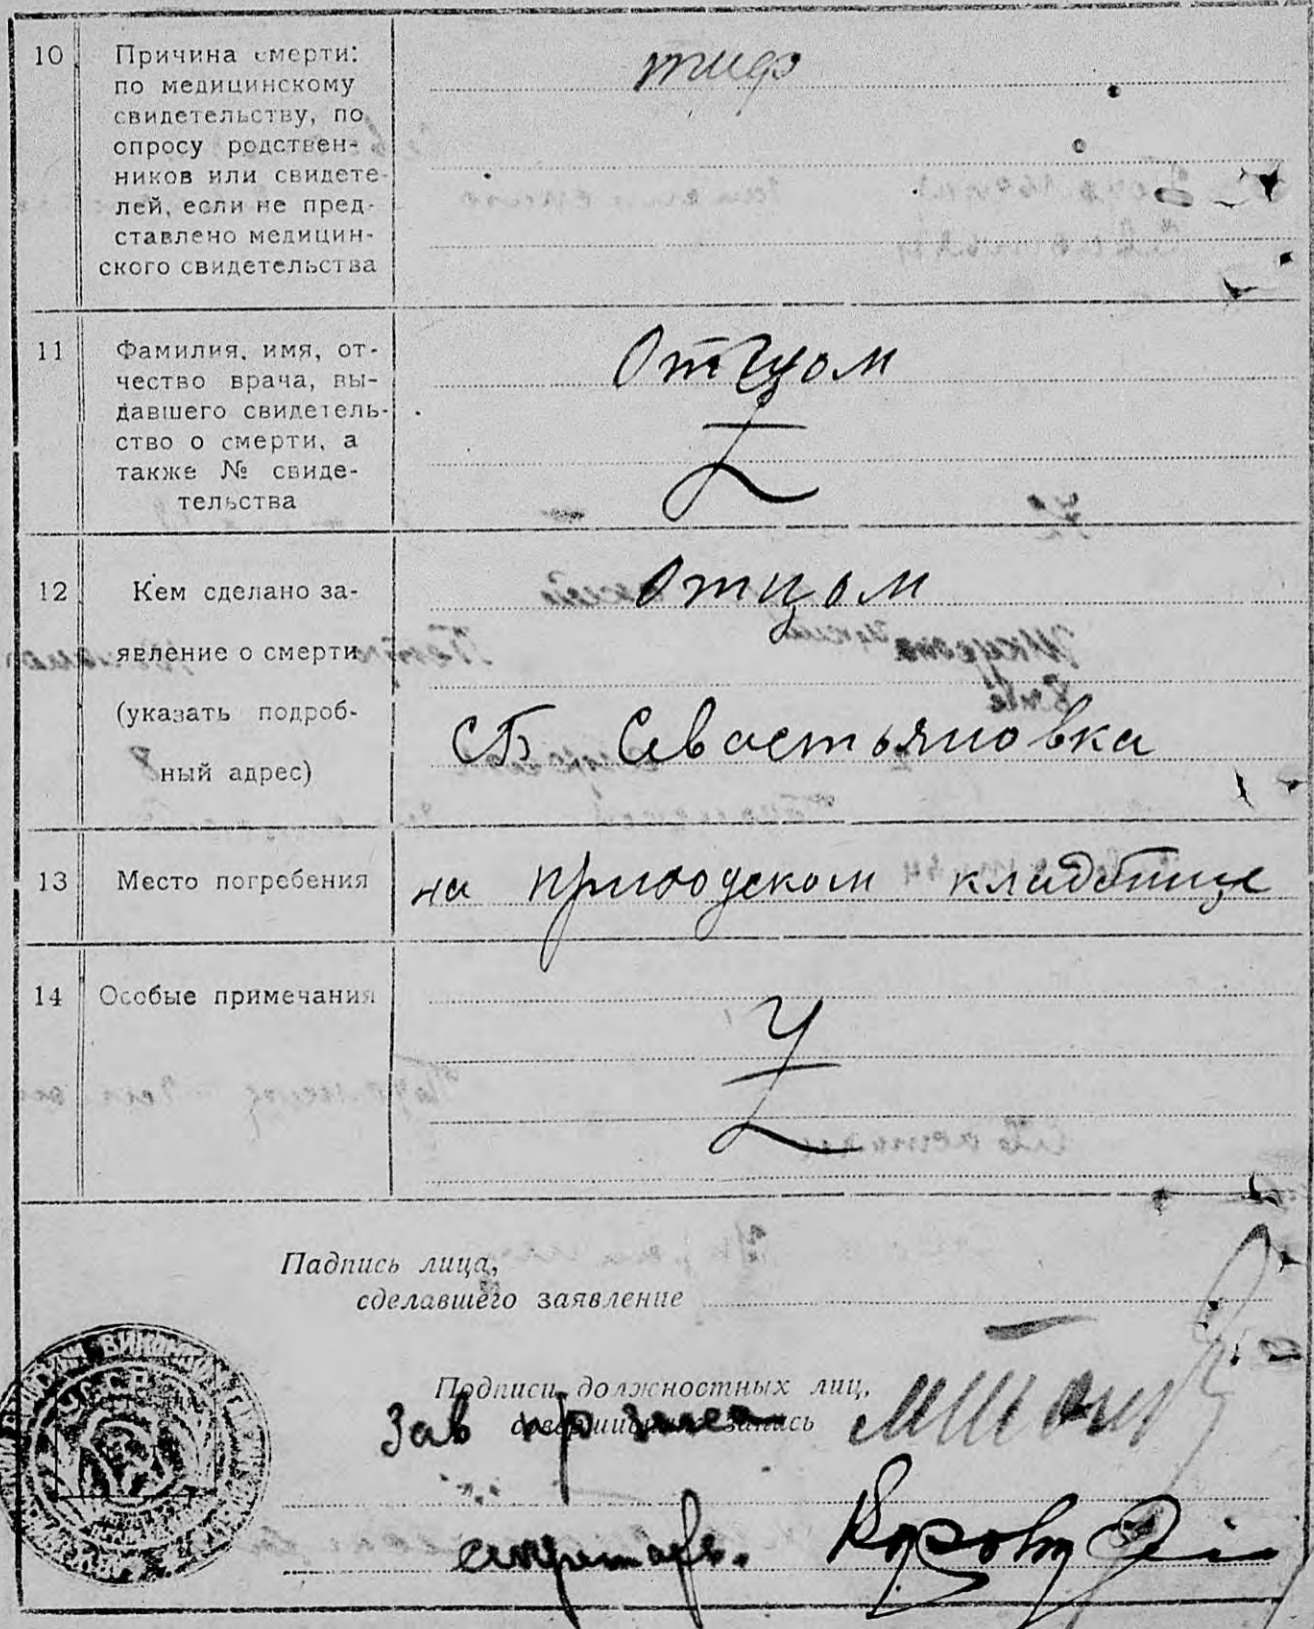 10 Причина смерти: тиф
по медицинскому
свидетельству, по
опросу родствен-
ников или свидете-
лей, если не пред-
ставлено медицин-
ского свидетельства
11 Фамилия, имя, от- Отцом
чество врача, вы-
давшего свидетель-
ство о смерти, а
также № свиде-
тельства
12 Кем сделано за- Отцом
явление о смерти
(указать подроб- Севастьяновка
ный адрес)
13 Место погребения на кладбище
14 Особые примечания
Падпись лица,
сделавшего заявление
Подписи должностных лиц,
совершивших запись
Зав
секретарь.